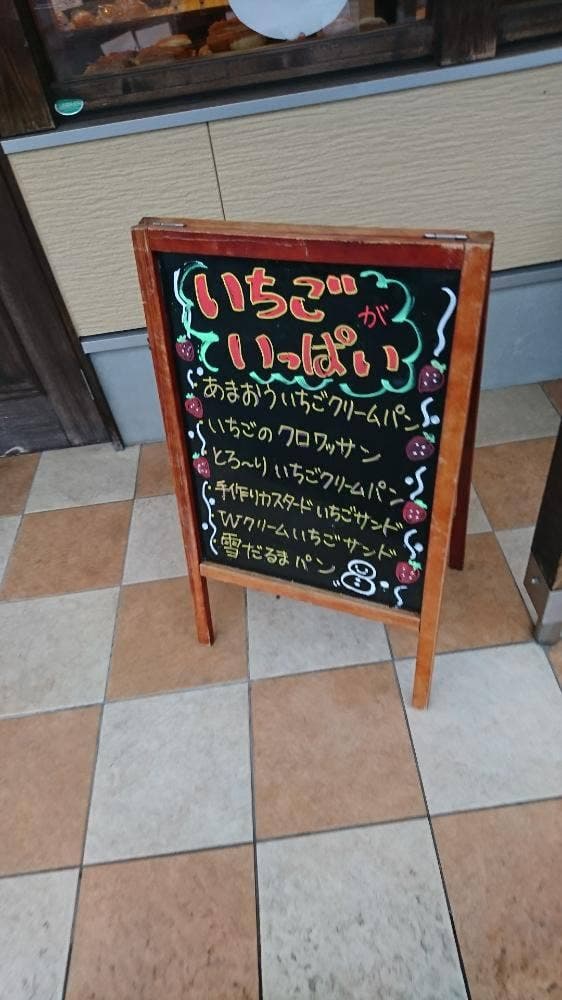 いちごが
いっぱい
あまおういちごクリームパン
いちごのクロワッサン
とろ～りいちごクリームパン
手作りカスタードいちごサンド
Wクリームいちごサンド
雪だるまパン